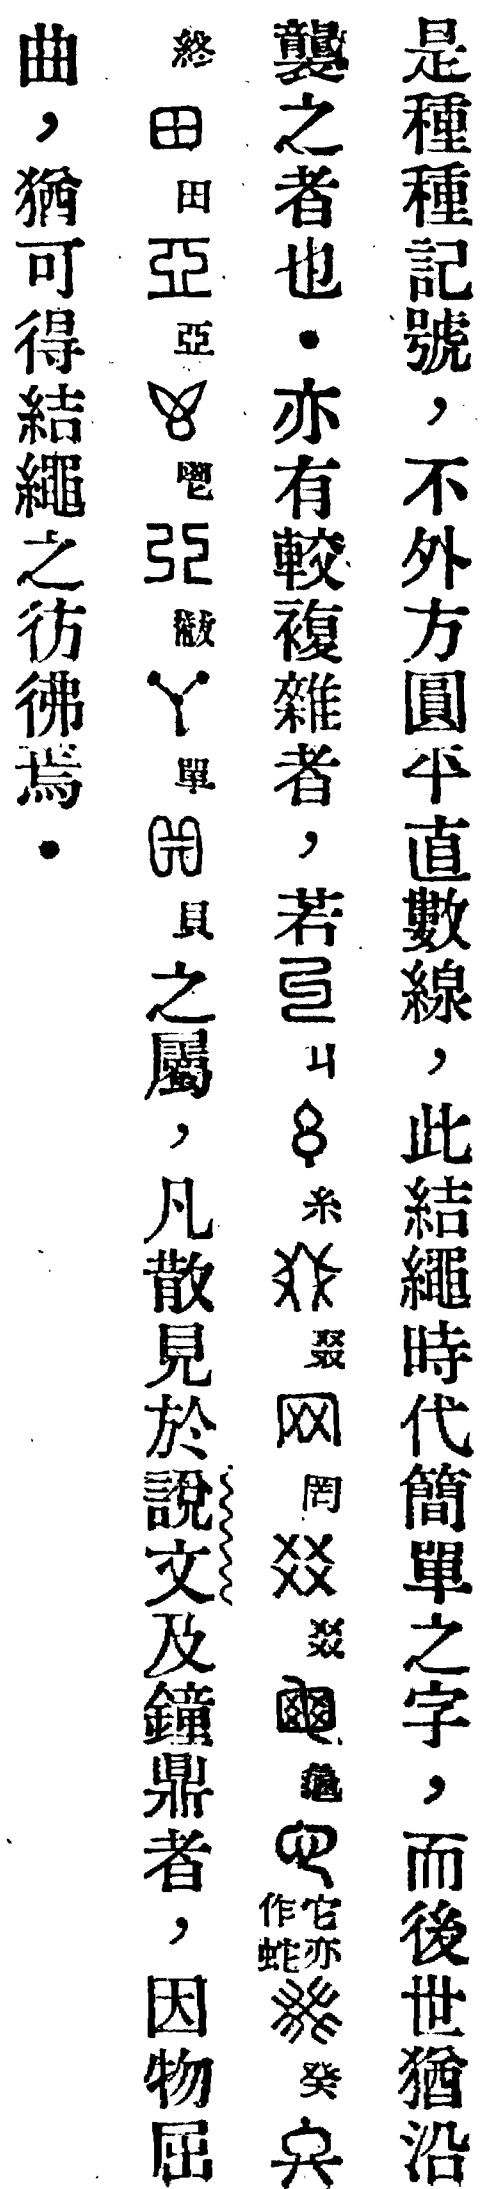 是種種記號，不外方圓平直數線，此結繩時代簡單之字，而後世猶沿
襲之者也．亦有較複雜者，若丩糸叕罔㸚龜它亦作蛇癸
終田田亞亞鬯黻單貝之屬，凡散見於說文及鐘鼎者，因物屈
曲，猶可得結繩之彷彿焉．